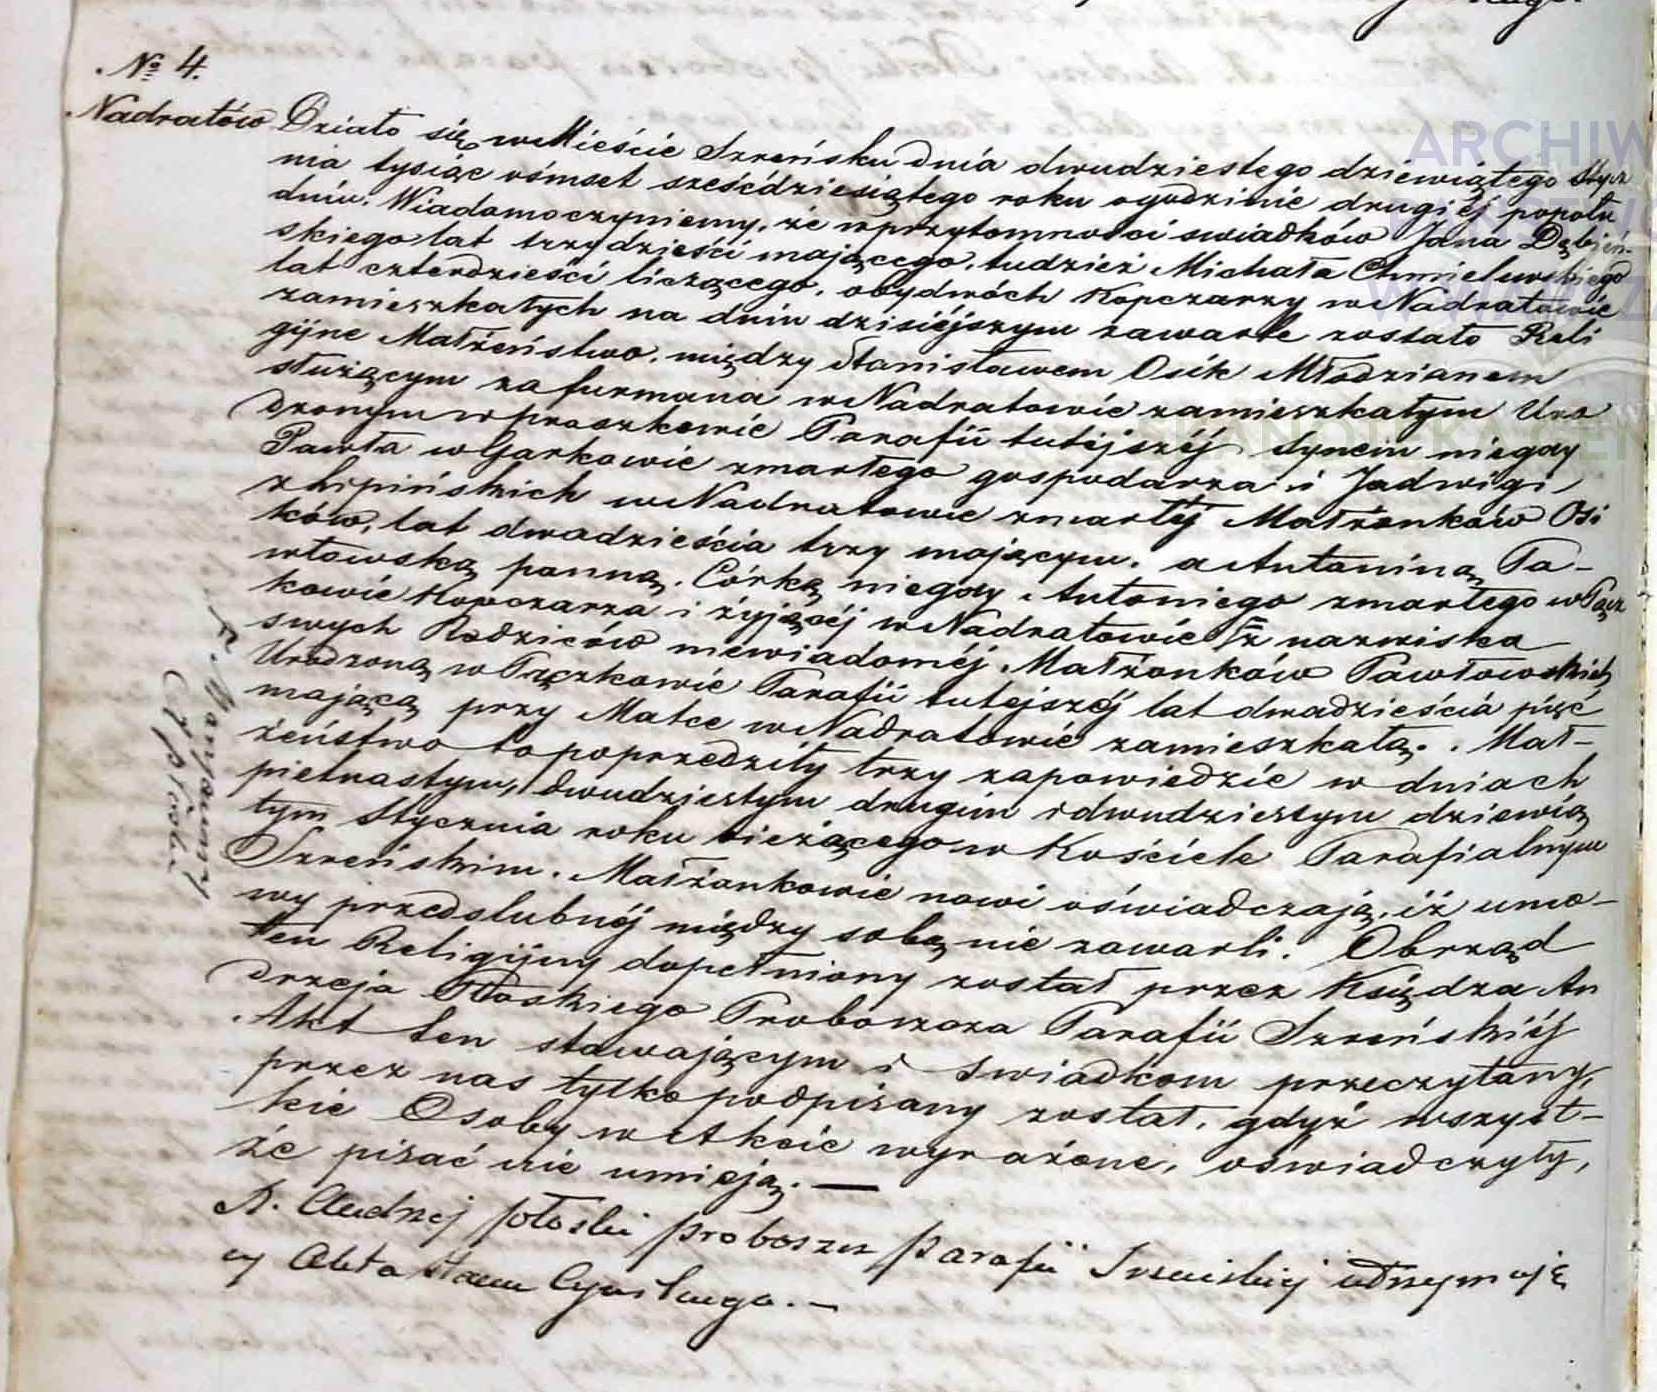 № 4.
Nadratów Działo się w Mieście Szreńsku dnia dwudziestego dziewiątego Stycz
nia tysiąc ośmset sześćdziesiątego roku o godzinie drugiéj popołu
dniu. Wiadomo czyniemy, że w przytomności swiadków Jana Dębień-
skiego lat trzydzieści mającego, tudzież Michała Chmielewskiego
lat czterdzieści liczącego, obydwóch Kopczarzy w Nadratowie
zamieszkałych na dniu dzisiéjszym zawarte zostało Reli
gijne Małżeństwo, między Stanisławem Osik Młodzianem
służącym za furmana w Nadratowie zamieszkałym Uro
dzonym w proszkowie Parafii tutéjszéj Synem niegdy
Pawła w Garkowie zmarłego gospodarza i Jadwigi
z Lipińskich w Nadratowie zmarłéj Małżonków Osi
ków, lat dwadzieścia trzy mającym, a Antoniną Pa-
włowską panną, Córką niegdy Antoniego zmarłego w Pącz
kowie Kopczarza i żyjącéj w Nadratowie z nazwiska
swych Rodziców niewiadoméj Małżonków Pawłowskich
Urodzoną w Pączkowie Parafii tutejszéj lat dwadzieścia pięć
mającą przy Matce w Nadratowie zamieszkałą. Mał-
żeństwo to poprzedziły trzy zapowiedzie w dniach
pietnastym, dwudziestym drugim i dwudziestym dziewią
tym Stycznia roku bieżącego w Kościele Parafialnym
Szreńskim. Małżonkowie nowi oświadczają, iż umo-
wy przedslubnéj między sobą nie zawarli. Obrząd
ten Religijny dopełniony został przez Księdza An
drzeja Płoskiego Proboszcza Parafii Szreńskiéj
Akt ten stawającym i Swiadkom przeczytany,
przez nas tylko podpisany został, gdyż wszyst-
kie Osoby w Akcie wyrażone, oświadczyły,
że pisać nie umieją. —
X. Andrzej płoski proboszcz parafii Szreńskiej utrzymują
cy Akta Stanu Cywilnego. —